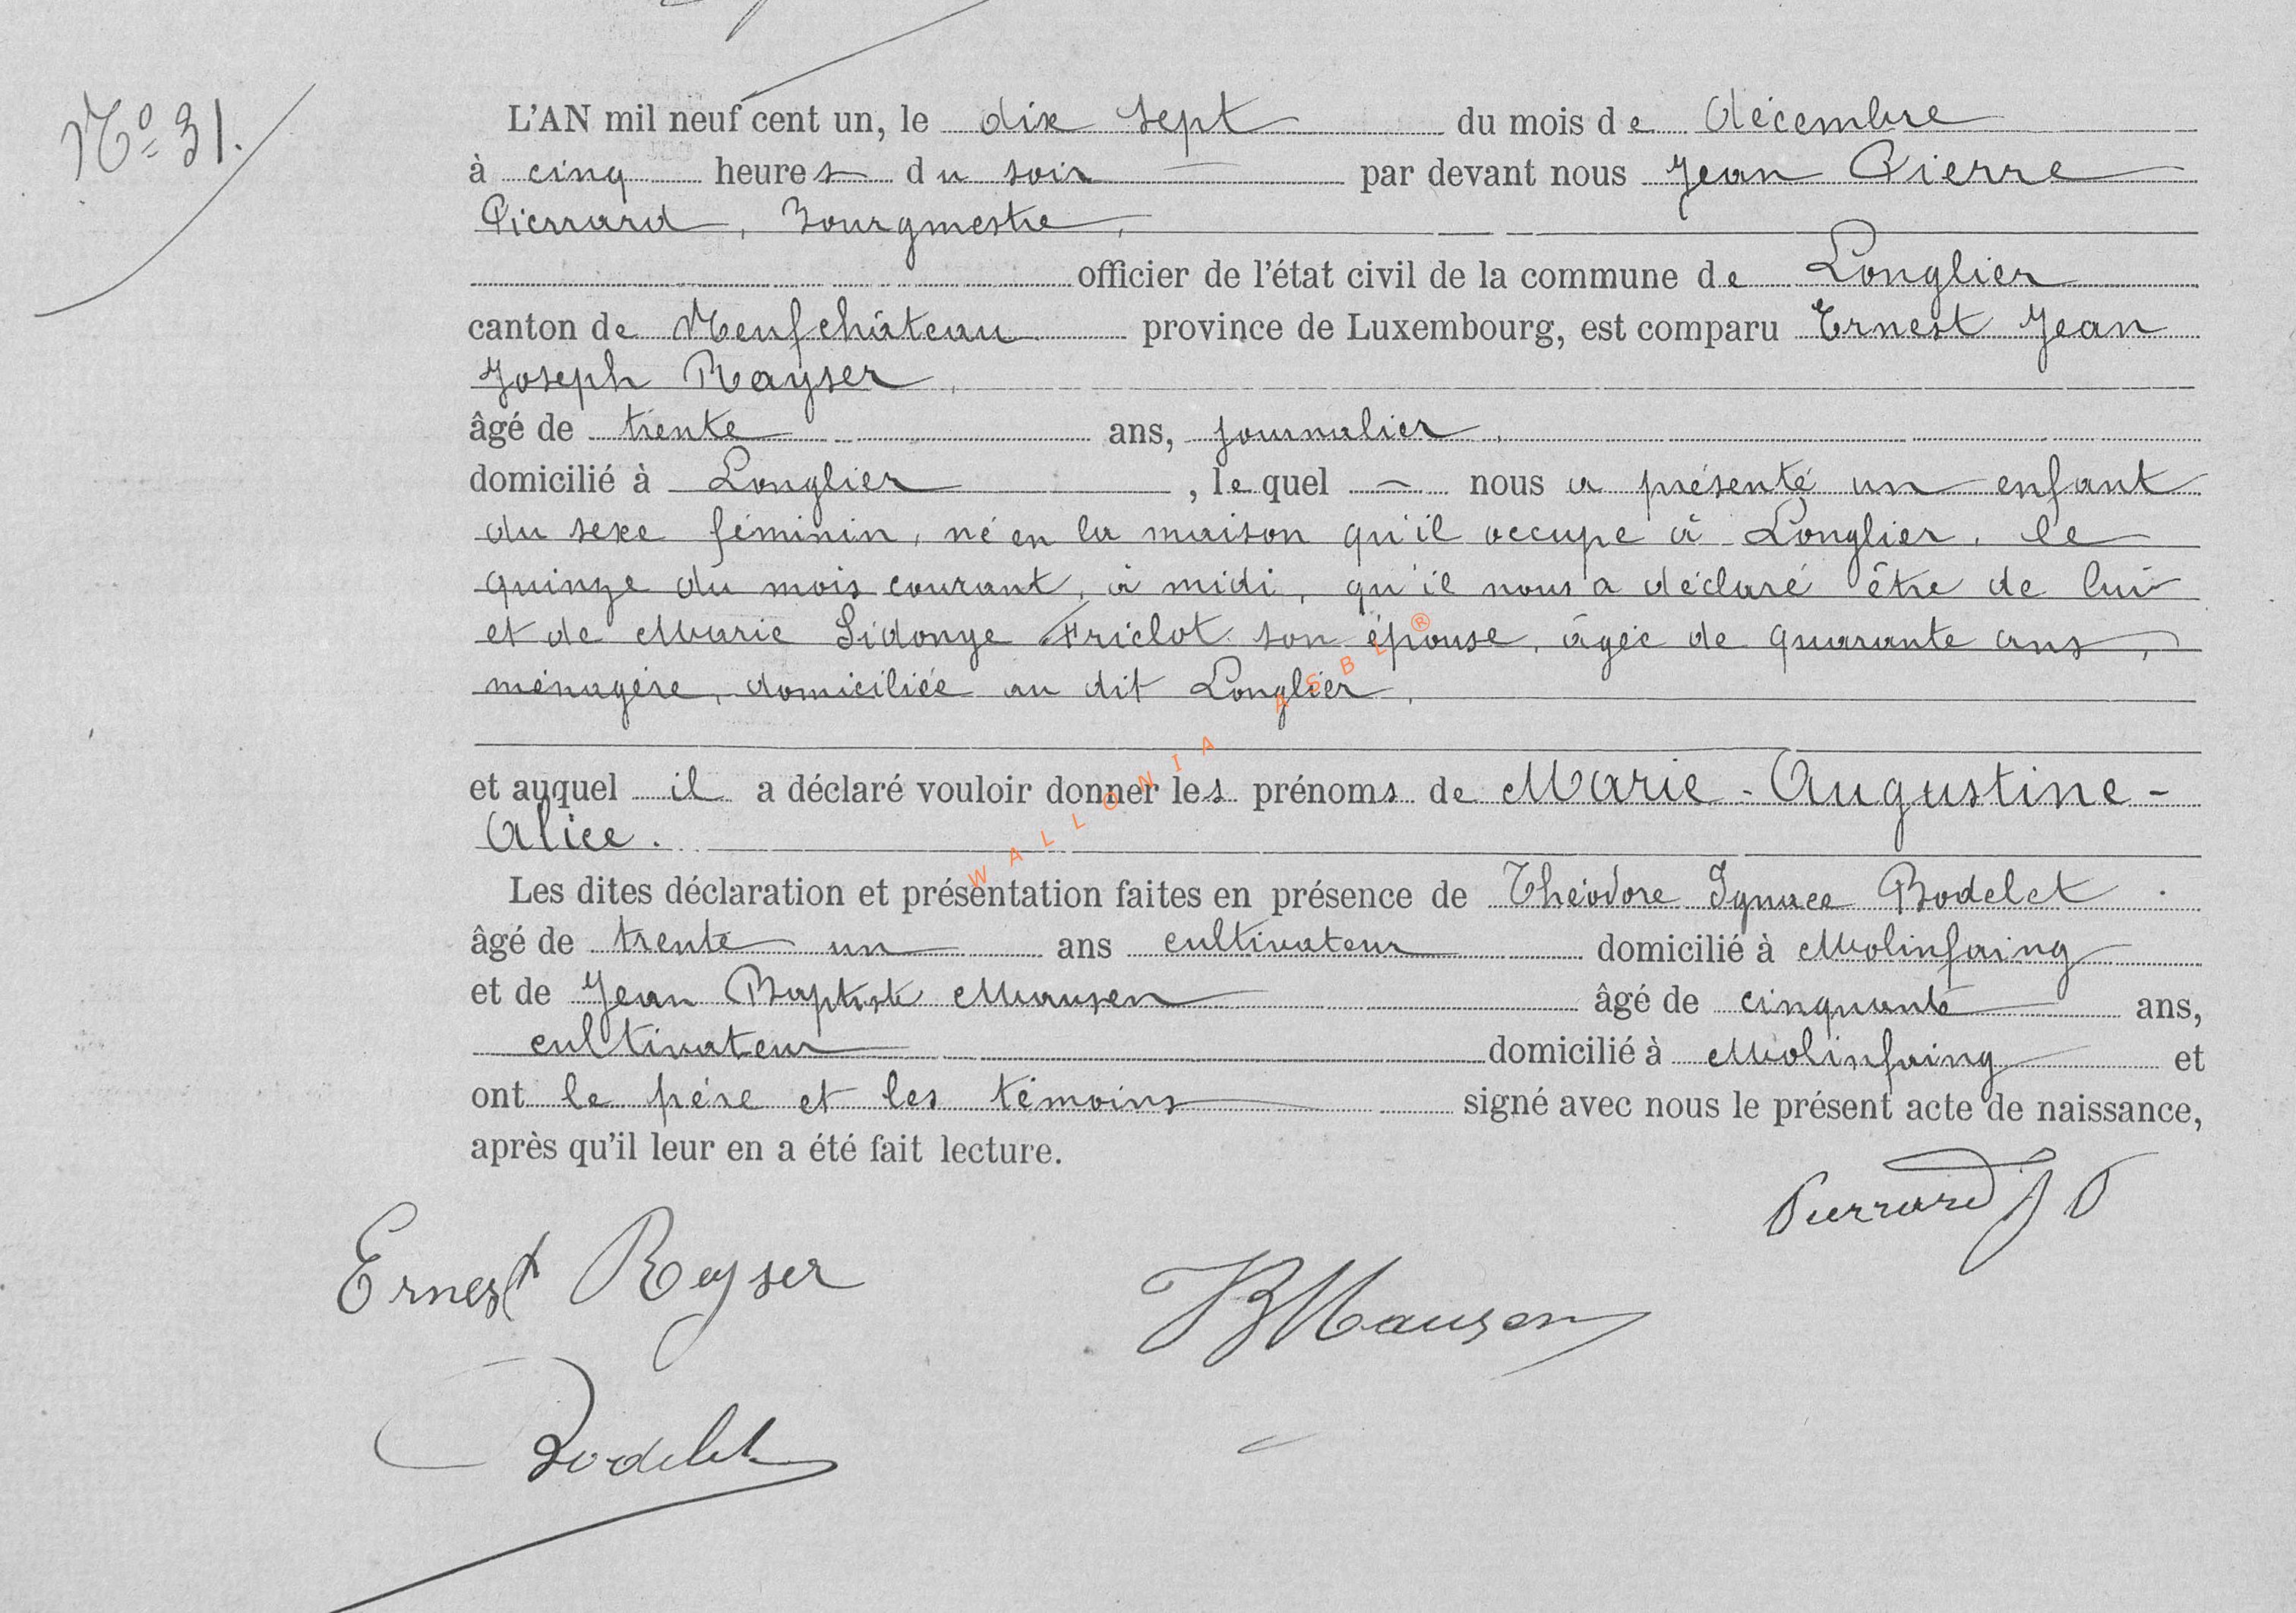 N° 31.
L'AN mil neuf cent un, le dix sept du mois de décembre
à cinq heures du soir par devant nous Jean Pierre
Pierrard, Bourgmestre,
officier de l'état civil de la commune de Longlier
canton de Neufchâteau province de Luxembourg, est comparu Ernest Jean
Joseph Rayser,
âgé de trente ans, journalier,
domicilié à Longlier, lequel nous a présenté un enfant
du sexe féminin, né en la maison qu'il occupe à Longlier, le
quinze du mois courant, à midi, qu'il nous a déclaré être de lui
et de Marie Sidonye Friclot son épouse, âgée de quarante ans,
ménagère, domiciliée au dit Longlier,
et auquel il a déclaré vouloir donner les prénoms de Marie-Augustine-
Alice.
Les dites déclaration et présentation faites en présence de Théodore Ignace Bodelet
âgé de trente un ans cultivateur domicilié à Molinfaing
et de Jean Baptiste Mausen âgé de cinquante ans,
cultivateur domicilié à Molinfaing et
ont le père et les témoins signé avec nous le présent acte de naissance,
après qu'il leur en a été fait lecture.
Pierrard J P
Ernest Reyser
JB Mausen
Bodelet
WALLONIA ASBL ®